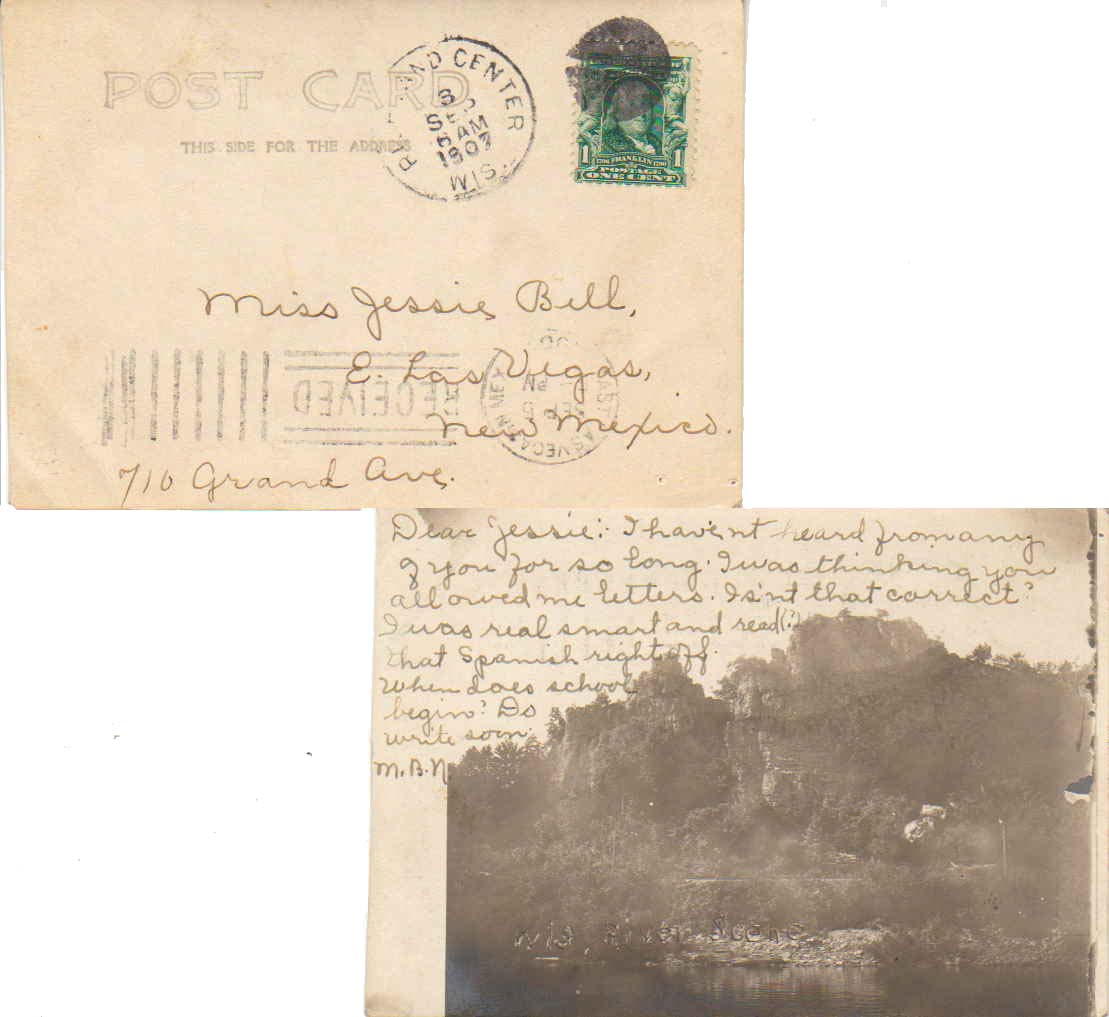 POST CARD
THIS SIDE FOR THE ADDRESS
CENTER
6 AM
1907
WIS.
1790 FRANKLIN 1790
1 POSTAGE 1
ONE CENT
Miss Jessie Bell,
E. Las Vegas,
New Mexico.
RECEIVED
710 Grand Ave.
Dear Jessie:- I have'nt heard from any
of you for so long. I was thinking you
all owed me letters. Is'nt that correct?
I was real smart and read(?)
that Spanish right off.
When does school
begin? Do
write soon.
M.B.N.
Wis. River Scene